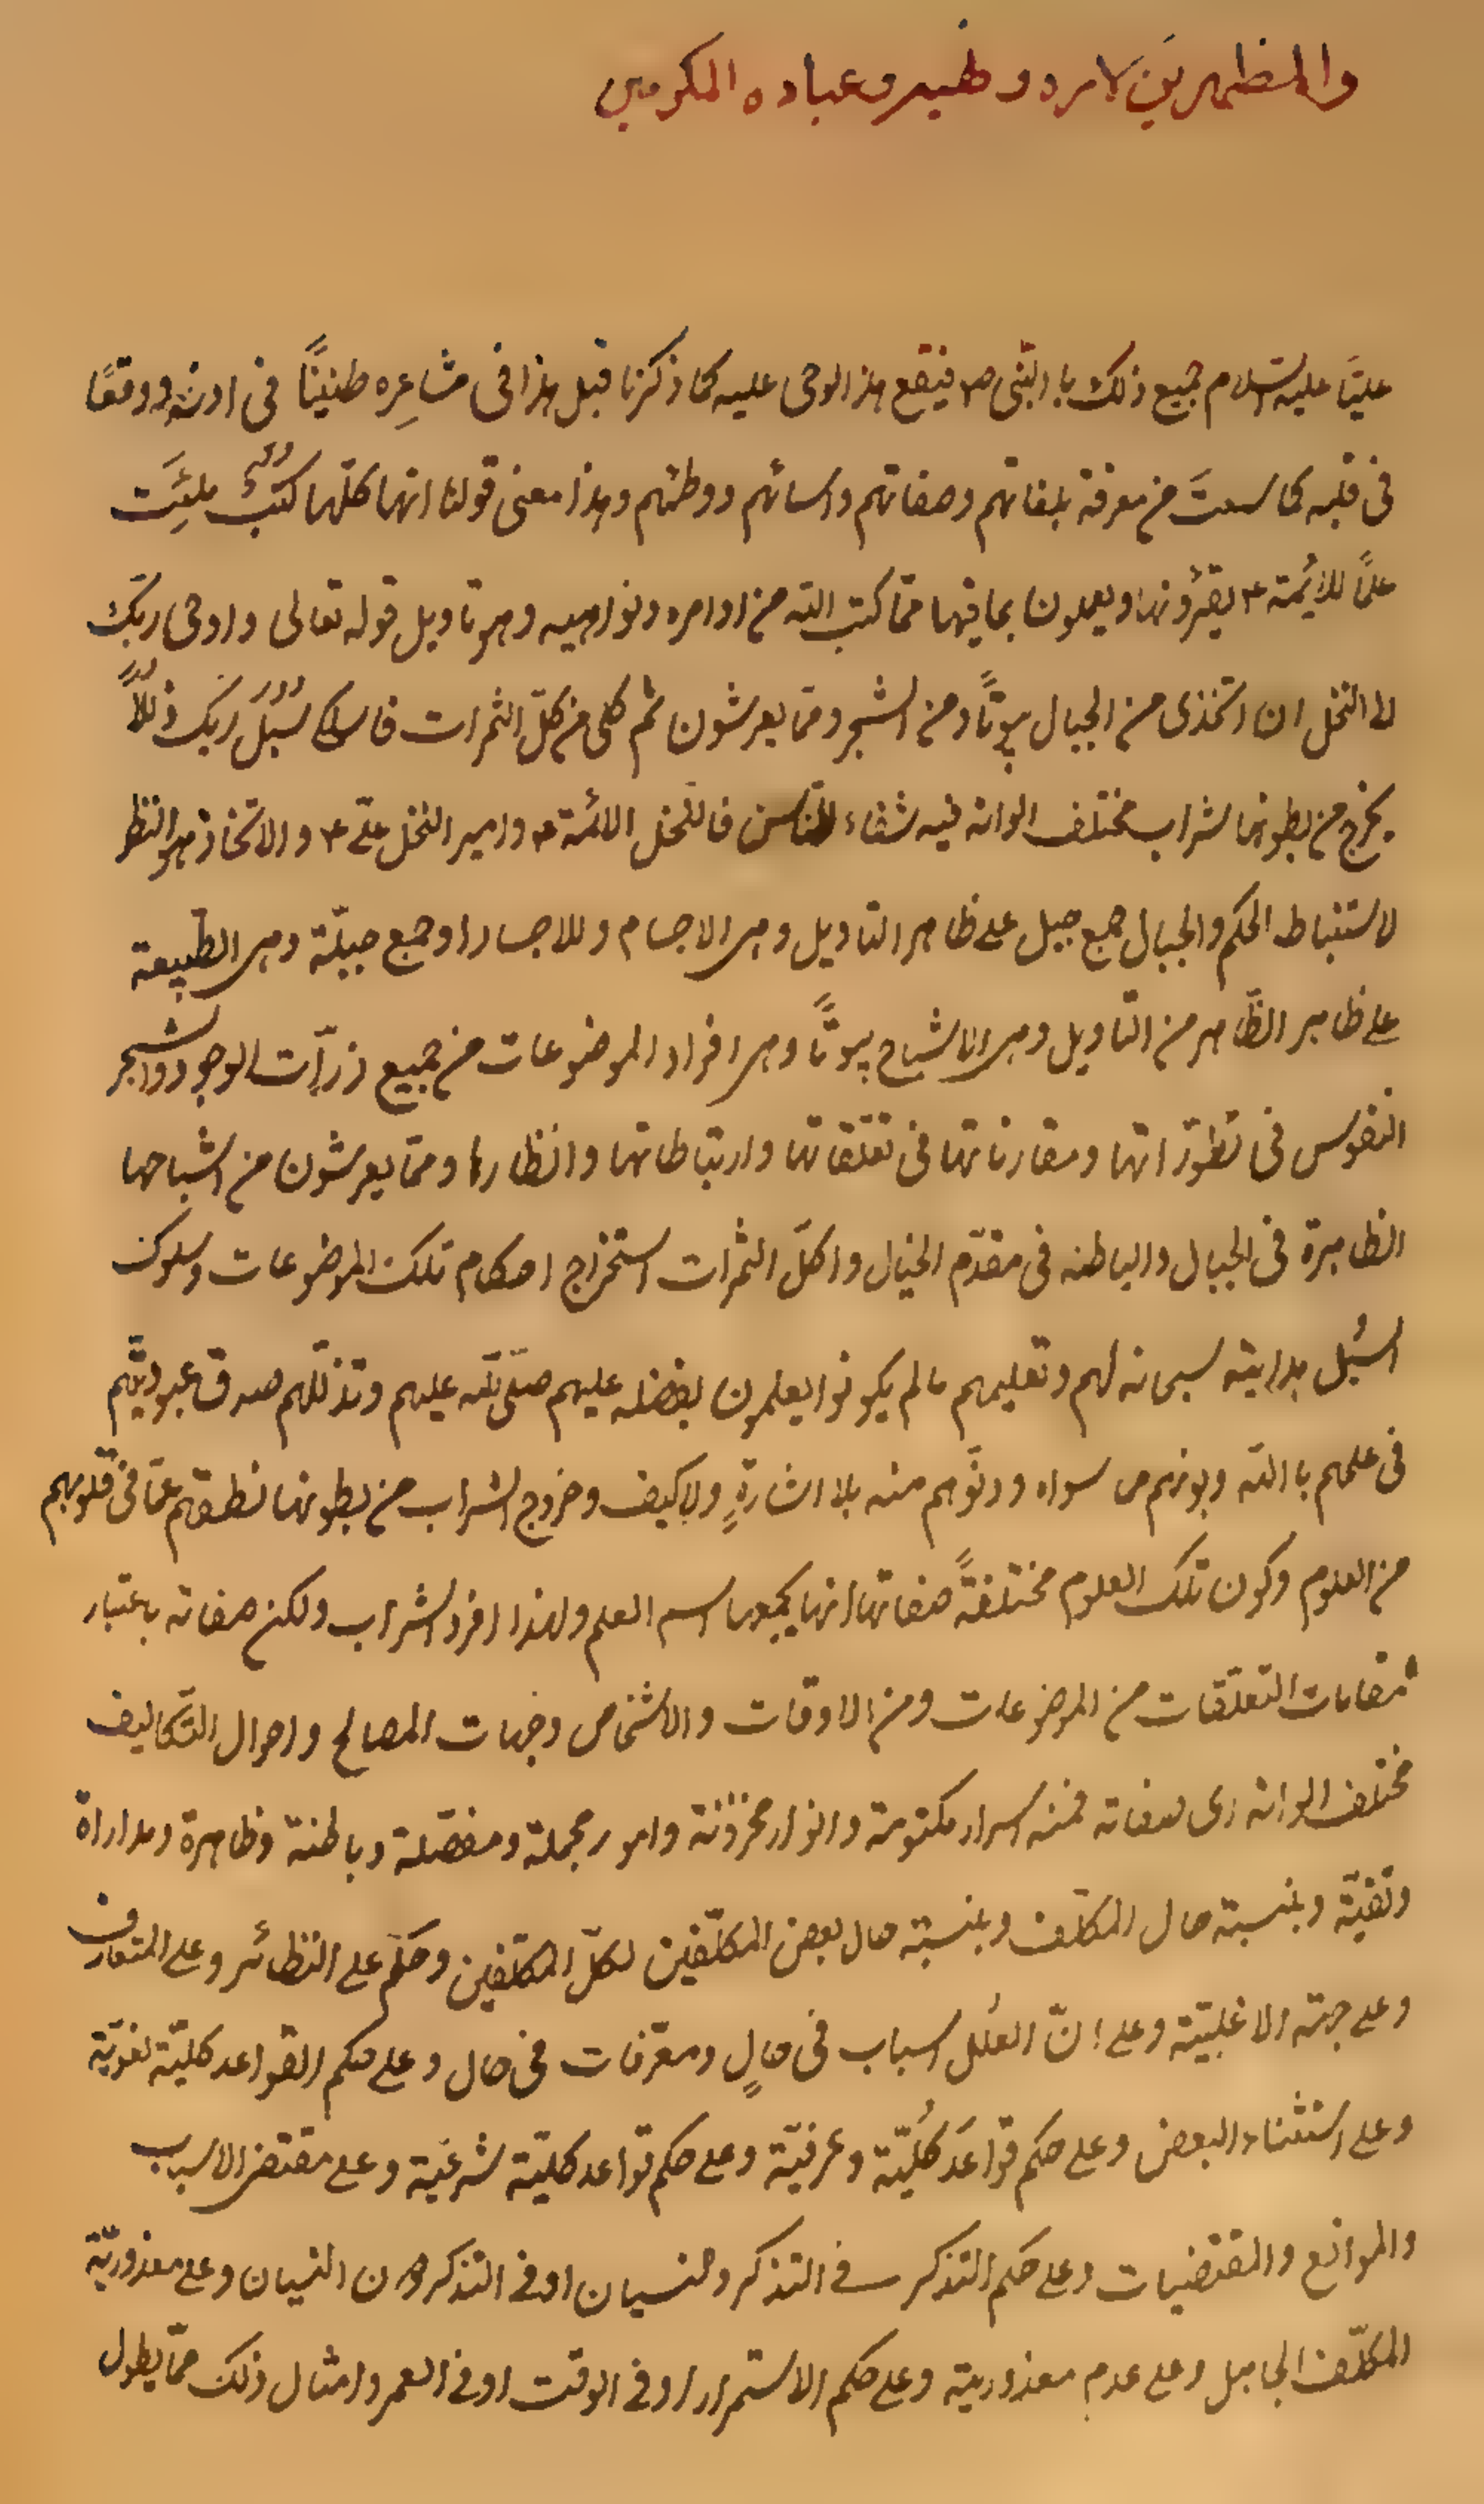 والمظهرين لامره و نهيه وعباده المكرمين
عليّا عليه السّلام جميع ذلك بالنّبى ص فيقع هذا الوحى عليه كما ذكرنا قبل هذا فى مشاعِره طنينًا فى اذنه ووقعًا
فى قلبه كما سمعتَ من معرفة بلغاتهم وصفاتهم واسمائهم ووطئهم وهذا معنى قولنا انها كلّها كُتُبٌ مُلِئَت
علمًا للائمّة ع يقرؤنها ويعملون بما فيها ممّا كتب الله من اوامره ونواهيه وهو تاويل قوله تعالى واوحى ربّك
الى النحل ان اتّخذى من الجبال بيوتًا ومن الشجر وممّا يعرشون ثم كلى من كلّ الثمرات فاسلكى سُبُلَ ربّك ذُلُلًا
يخرج من بطونها شراب مختلف الوانه فيه شفاء للناس فالنّحل الائمّة ع وامير النحل علىّ ع والاتّخاذ هو النظر
لاستنباط الحكم والجبال جمع جبل على ظاهر التاويل وهى الاجسام وللاجساد او جمع جبلّة وهى الطّبيعة
على ظاهر الظّاهر من التاويل وهى الاشباح بيوتًا وهى افراد الموضوعات من جميع ذرّات الوجود والشجر
النفوس فى تطوّراتها ومقارناتها فى تعلّقاتها وارتباطاتها وانظارها وممّا يعرشون من اشباحها
الظاهرة فى الجبال والباطنه فى مقدّم الخيال واكل الثمرات استخراج احكام تلك الموضوعات وسلوك
السُبل بهدايته سبحانه لهم وتعليمهم ما لم يكونوا يعلمون بفضله عليهم صلّى الله عليهم وتذلّلهم صدق عبوديّتهم
فى علمهم باالله وبونهم من سواه ودنوّهم منه بلا اشارةٍ ولا كيف وخروج الشراب من بطونها نطقهم عمّا فى قلوبهم
من العلوم وكون تلك العلوم مختلفةً صفاتها انها يجمعها اسم العلم ولهذا افرد الشراب ولكن صفاته باعتبار
مقامات التعلّقات من الموضوعات ومن الاوقات والاشخاص وجهات المصالح واحوال التّكاليف
مختلف الوانه اى صفاته فمنه اسرار مكتومة وانوار مخزونة وامور مجملة ومفصّلة وباطنة وظاهرة ومداراة
وتقيّة وبنسبة حال المكلّف وبنسبة حال بعض المكلّفين لكلّ المكلّفين وحكم على النظائر وعلى المتعارف
وعلى جهة الاغلبيّة وعلى انّ العلل اسباب فى حالٍ ومعرّفات فى حال وعلى حكم القواعد كليّة لغويّة
وعلى استثناء البعض وعلى حكم قواعدَ كُليّة وعرفيّة وعلى حكم قواعد كليّة شرعيّة وعلى مقتضى الاسباب
والموانع والمقتضيات وعلى حكم التذكر فى التذكر والنسيان او فى التذكر دون النسيان وعلى معذوريّة
المكلّف الجاهل وعلى عدم معذوريّة وعلى حكم الاستمرار او فى الوقت او فى العمر وامثال ذلك ممّا يطول